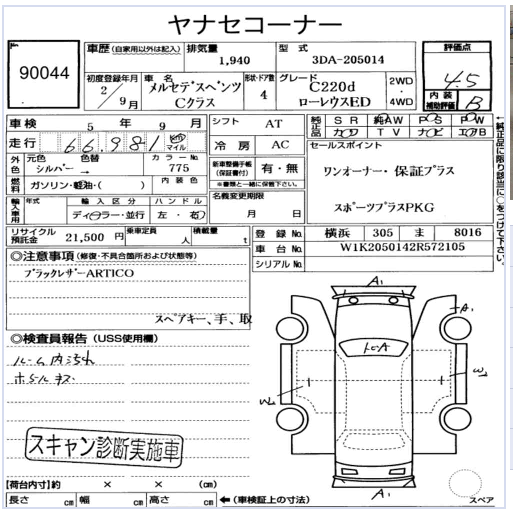 ヤナセコーナー
No.
90044
車歴 (自家用以外は記入)
排気量
1,940
型 式
3DA-205014
評価点
4.5
内装
補助評価
B
初度登録年月
2/9月
車 名
メルセデスベンツ
Cクラス
形状・ドア数
4
グレード
C220d
ローレウスED
2WD
・
4WD
車検 5 年 9 月
シフト AT
走行 66,981 km マイル
冷房 AC
純正品 S R 純AW P S P W
カワ T V ナビ エアB
←純正品に限り該当に○をつけて下さい。
外色 元色 色替 カラーNo.
シルバー → 775
新車整備手帳
(保証書付)
有・無
※書類と一緒に保管下さい。
セールスポイント
ワンオーナー・保証プラス
スポーツプラスPKG
燃料 ガソリン・軽油・( ) 内装色
名義変更期限
月 日
輸入車用 年式 輸入区分 ハンドル
ディーラー・並行 左・右
リサイクル
預託金
21,500 円
乗車定員
人
積載量
t
登録No. 横浜 305 ま 8016
車台No. W1K2050142R572105
シリアルNo.
◎注意事項 (修復・不具合箇所および状態等)
ブラックレザーARTICO
スペアキー、手、取
◎検査員報告 (USS使用欄)
ルーム内汚れ
スキャン診断実施車
A1
A1
W2
A1
スペア
【荷台内寸】約 × × (cm)
長さ cm 幅 cm 高さ cm ←(車検証上の寸法)